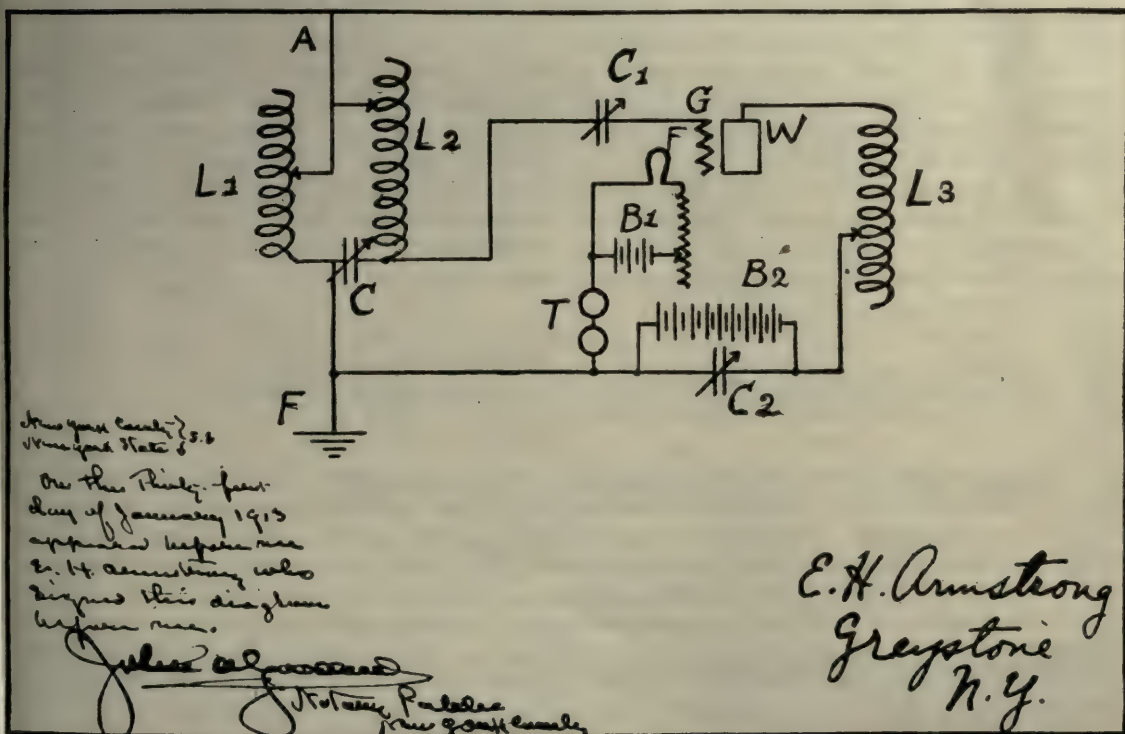 A
C1
G
F
W
L2
L1
L3
B1
B2
C
T
C2
F
New York County } S.S
New York State }
On this Thirty-first
day of January 1913
appeared before me
E. H. Armstrong who
signed this diagram
before me.
Notary Public
New York County
E.H. Armstrong
Greystone
N.Y.